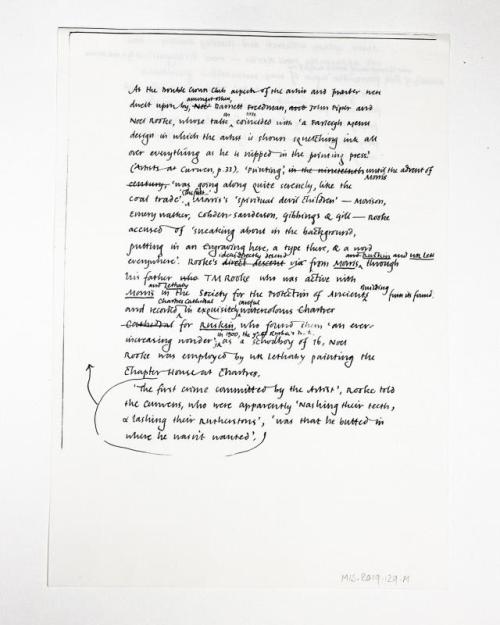 At the Double Crown Club aspects of the artist and printer were
amongst others,
dwelt upon by, Not Barnett Freedman, and John Piper and
Noel Rooke, whose talk in 1935 coincided with 'a Farleigh Menu
design in which the artist is shown squelching ink all
over everything as he is nipped in the printing press'
(Artists at Curwen, p.33). 'Printing', in the nineteenth until the advent of
Morris
century, 'was going along quite serenely, like the
coal trade'. Morris's 'spiritual devil children' — Morison,
Emery Walker, Cobden-Sanderson, Gibbings & Gill — Rooke
accused of 'sneaking about in the background,
putting in an engraving here, a type there, & a word
everywhere'. Rooke's direct descent via from Morris and Ruskin and WR Leth through
his father who TM Rooke who was active with
and Lethaby
Morris in the Society for the Protection of Ancient Building from its found.
Chartres Cathedral
careful
and recorded in exquisitely watercolours Chartres
Cathedral for Ruskin, who found them 'an ever-
increasing wonder'. as a schoolboy of 16, Noel
Rooke was employed by WR Lethaby painting the
Chapter House at Chartres.
'The first crime committed by the Artist', Rooke told
the Curwens, who were apparently 'Nashing their teeth,
& lashing their Rutherstons', 'was that he butted in
where he wasn't wanted'.
MIS.2019.129.M